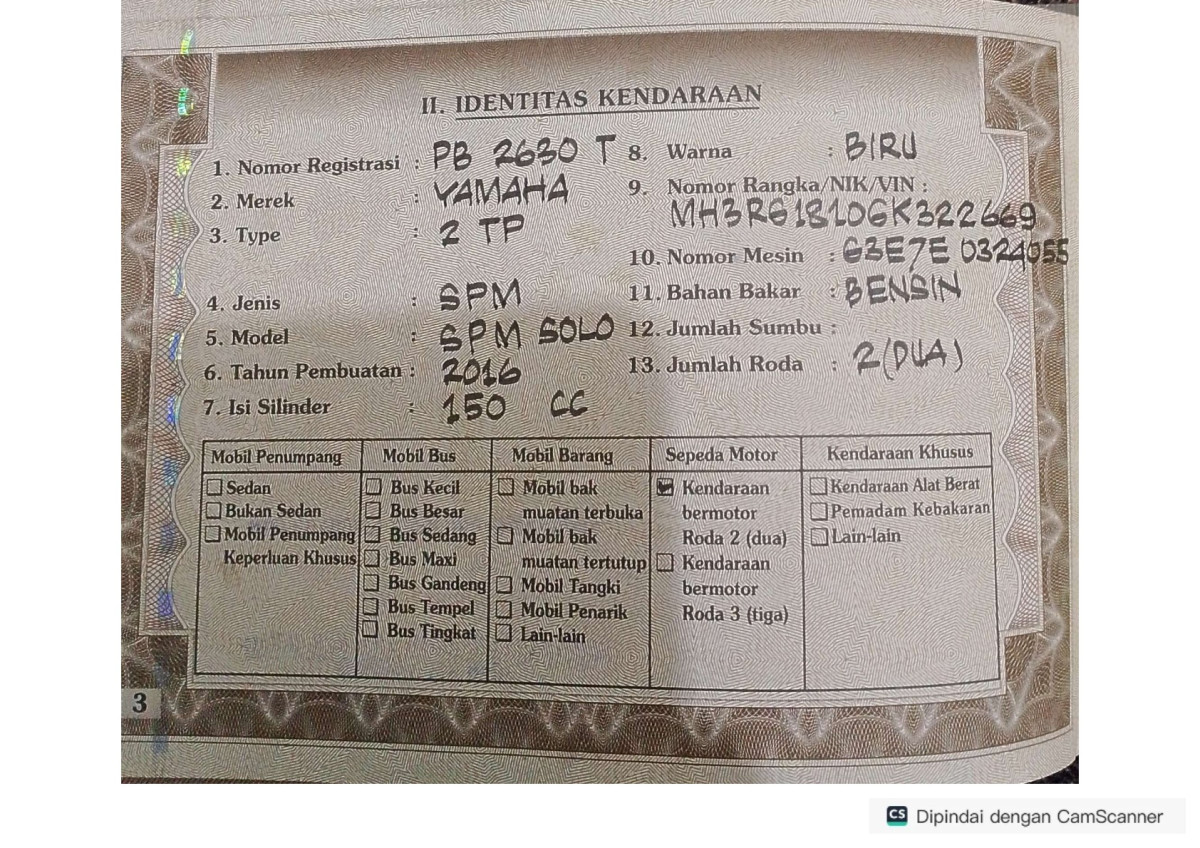 II. IDENTITAS KENDARAAN
1. Nomor Registrasi : PB 2630 T
2. Merek : YAMAHA
3. Type : 2 TP
4. Jenis : SPM
5. Model : SPM SOLO
6. Tahun Pembuatan : 2016
7. Isi Silinder : 150 CC
8. Warna : BIRU
9. Nomor Rangka/NIK/VIN :
MH3RG1810GK322669
10. Nomor Mesin : G3E7E 0324055
11. Bahan Bakar : BENSIN
12. Jumlah Sumbu :
13. Jumlah Roda : 2 (DUA)
Mobil Penumpang
Sedan
Bukan Sedan
Mobil Penumpang
Keperluan Khusus
Mobil Bus
Bus Kecil
Bus Besar
Bus Sedang
Bus Maxi
Bus Gandeng
Bus Tempel
Bus Tingkat
Mobil Barang
Mobil bak
muatan terbuka
Mobil bak
muatan tertutup
Mobil Tangki
Mobil Penarik
Lain-lain
Sepeda Motor
Kendaraan
bermotor
Roda 2 (dua)
Kendaraan
bermotor
Roda 3 (tiga)
Kendaraan Khusus
Kendaraan Alat Berat
Pemadam Kebakaran
Lain-lain
3
CS Dipindai dengan CamScanner